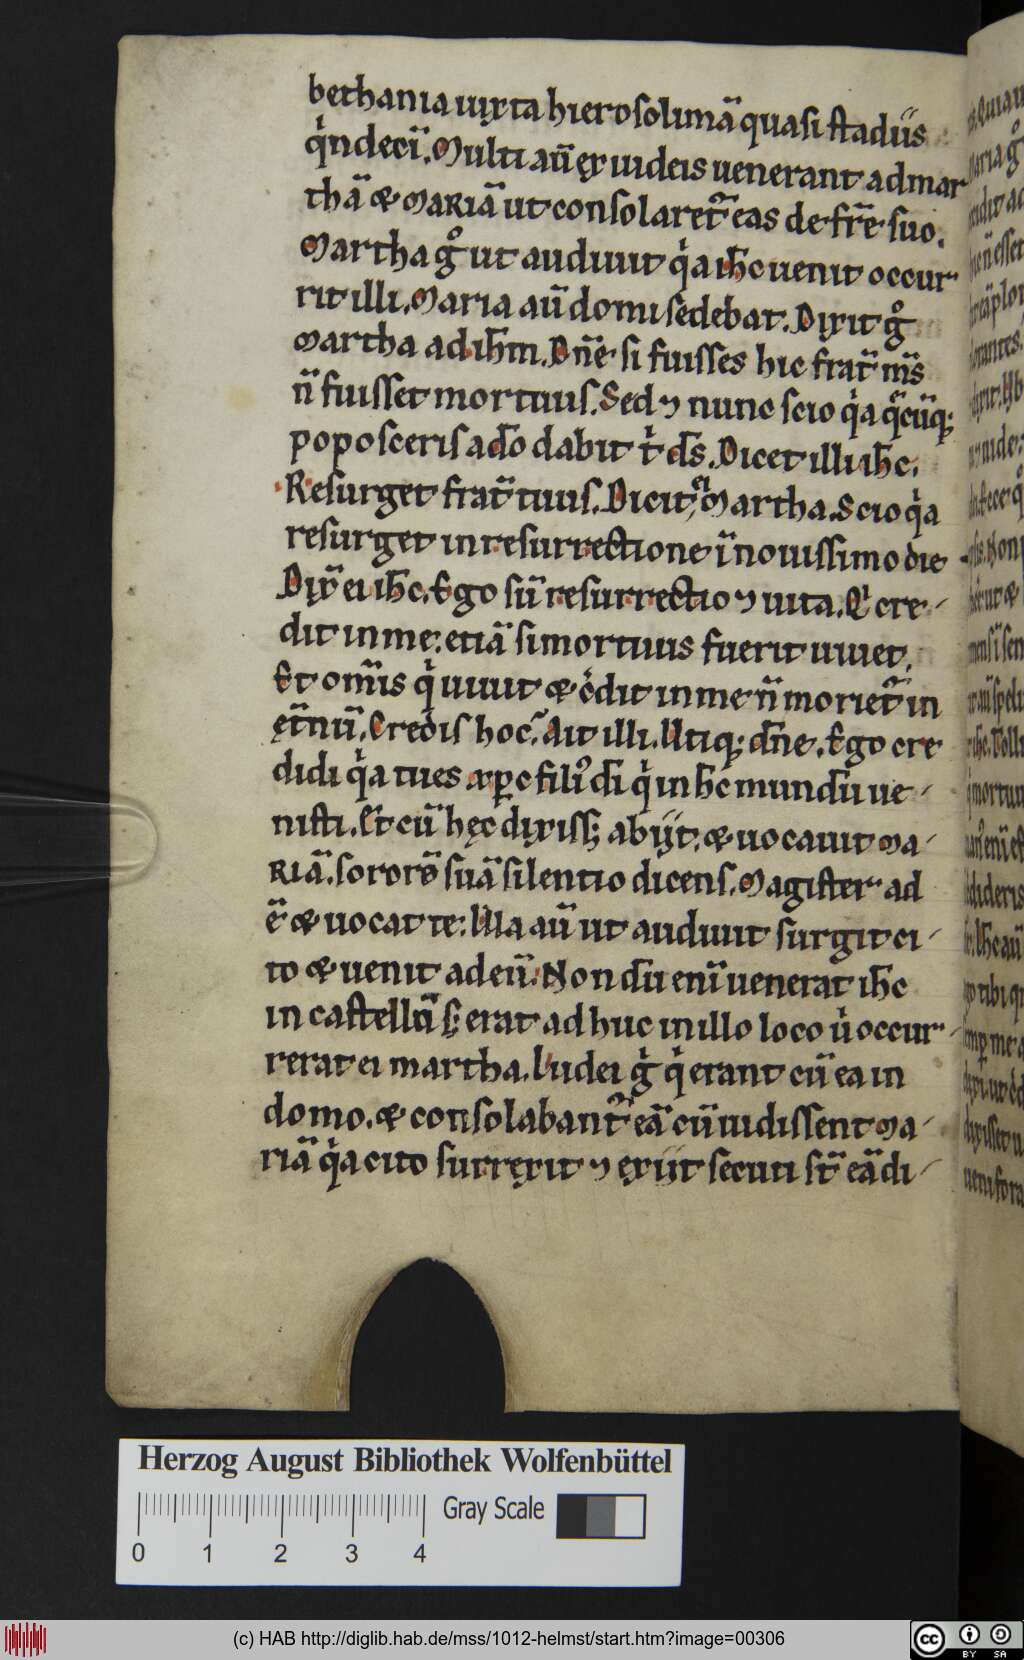 bethania iuxta hierosolimā quasi stadiis
qͥndeci̅. Multi au̅ ex iudeis uenerant ad mar
tha̅ & Maria̅ ut consolaret᷑ eas de fr̅e suo.
Martha gͦ ut audiuit qͥa ih̅c uenit occur
rit illi. Maria au̅ domi sedebat. Dixit gͦ
Martha ad ih̅m. Dn̅e si fuisses hic frat̅ m̅s
n̅ fuisset mortuus. Sed ⁊ nunc scio qͥa qͣcu̅q;
poposceris a do̅ dabit tͥ d̅s. Dicet illi ih̅c.
Resurget frat̅ tuus. Dicit ei Martha. Scio qͥa
resurget in resurrectione i̅ nouissimo die
Dix̅ ei ih̅c. Ego su̅ resurrectio ⁊ uita. Qͥ cre-
dit in me. etia̅ si mortuus fuerit uiuet.
Et om̅is qͥ uiuit & c̅dit in me n̅ moriet᷑ in
ęt̅nu̅. Credis hoc. Ait illi. Utiq; dn̅e. Ego cre
didi qͥa tu es xp̅c fili᷒ di̅ qͥ in hc̅ mundu̅ ue-
nisti. Et cu̅ hęc dixiss; abiit. & uocauit Ma-
ria̅. sorore̅ sua̅ silentio dicens. Magister ad
e̅ & uocat te. Illa au̅ ut audiuit surgit ci-
to & uenit ad eu̅. Nondu̅ eni̅ uenerat ih̅c
in castellu̅ s; erat adhuc in illo loco uͥ occur-
rerat ei martha. Iudei gͥ qͥ erant cu̅ ea in
domo. & consolabant᷑ ea̅ cu̅ uidissent Ma-
ria̅ qͥa cito surrexit ⁊ exiit secuti st̅ ea̅ di-
Herzog August Bibliothek Wolfenbüttel
Gray Scale
0 1 2 3 4
(c) HAB http://diglib.hab.de/mss/1012-helmst/start.htm?image=00306
cc BY SA